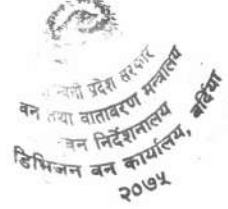 प्रदेश सरकार
वन तथा वातावरण मन्त्रालय
वन निर्देशनालय
डिभिजन वन कार्यालय, बर्दिया
२०७५